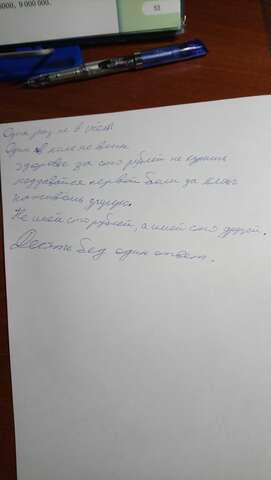 8000, 9 000 000.
53
Один раз не в счёт
Один в поле не воин
здоровье за сто рублей не купишь
поддаваться первой боли за
наживёшь другую.
Не имей сто рублей, а имей сто друзей.
Десять бед один ответ.